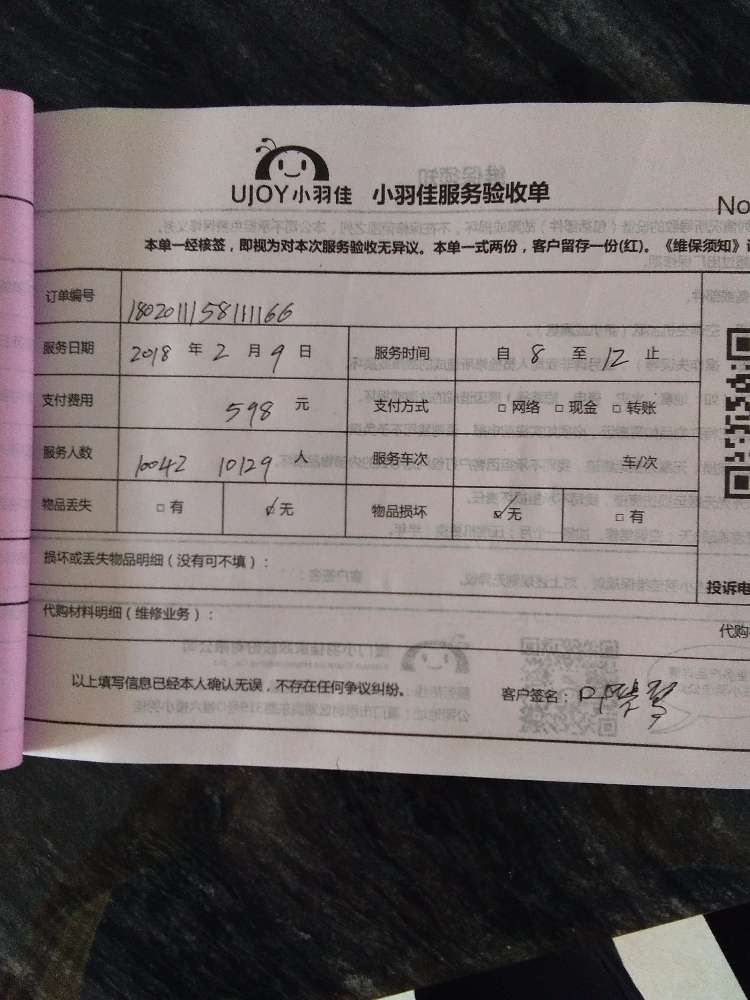 UJOY小羽佳 小羽佳服务验收单
No
本单一经核签，即视为对本次服务验收无异议。本单一式两份，客户留存一份(红)。《维保须知》
订单编号 180201115811166
服务日期 2018 年 2 月 9 日 服务时间 自 8 至 12 止
支付费用 598 元 支付方式 □ 网络 □ 现金 □ 转账
服务人数 10042 10129 人 服务车次 车/次
物品丢失 □ 有 ☑ 无 物品损坏 ☑ 无 □ 有
损坏或丢失物品明细（没有可不填）：
投诉电
代购材料明细（维修业务）：
代购
以上填写信息已经本人确认无误，不存在任何争议纠纷。 客户签名：